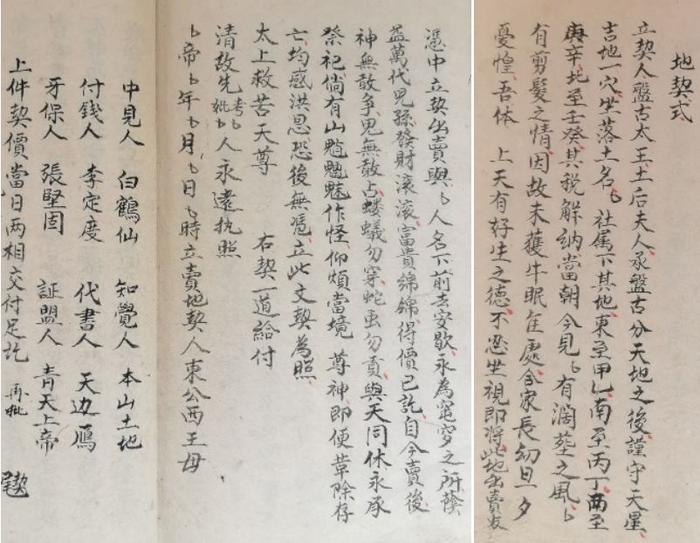 地契式
立契人盤古太王土后夫人承盤古分天地之後謹守天星
吉地一穴坐落土名〻社属下其地東至甲乙南至丙丁西至
庚辛北至壬癸其税觧納當朝今見〻有濶塟之風〻
有剪髮之情因故未獲牛眠在處合家長幼旦夕
憂惶吾体 上天有好生之德不忍坐視即將此地出賣
憑中立契出賣與〻人名下前去安歇永為窀穸之所蔭
益萬代児孫發財滚滚富貴綿綿得價已訖自今賣後
神無敢争鬼無敢占蝼蟻勿穿蛇虫勿賁與天同休永承
祭祀倘有山魈魍魅作怪仰煩當境 尊神即便革除存
亡均感洪恩恐後無憑立此文契為照
太上救苦天尊 右契一道給付
清故先考妣〻人永遠执照
〻帝〻年〻月〻日〻時立賣地契人東公西王母
中見人 白鶴仙 知覺人 本山土地
付錢人 李定度 代書人 天边鴈
牙保人 張堅固 証盟人 青天上帝
上件契價當日两相交付足訖 再批